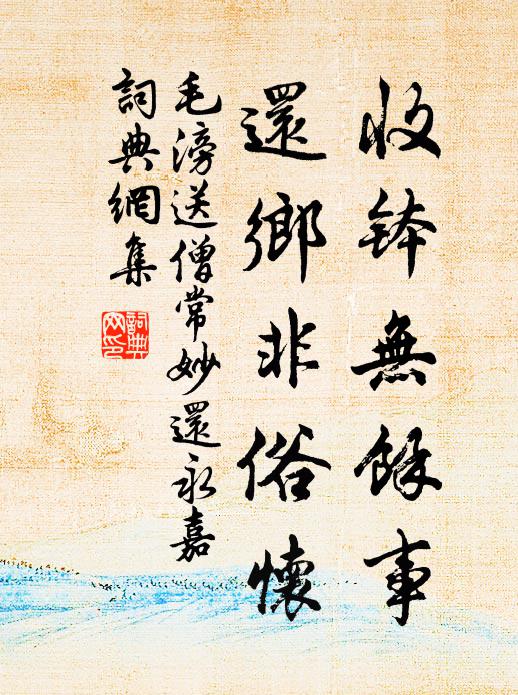 收鉢無餘事
還鄉非俗懷
毛滂送僧常妙還永嘉
詞典網集
詞典網印